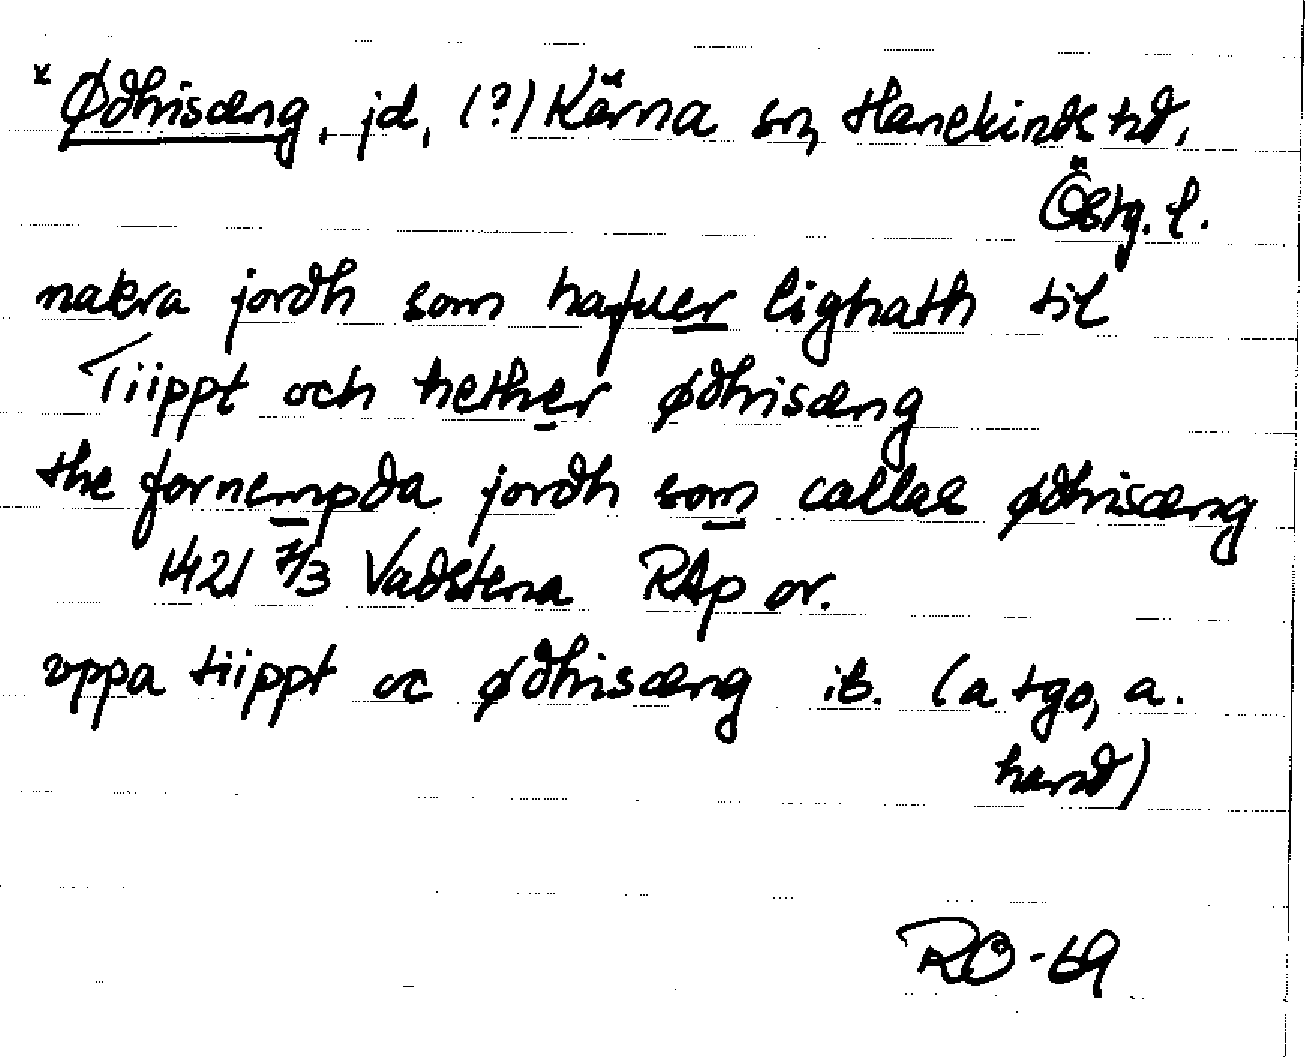 * Ødhrisæng, jd, (?) Kärna sn, Hanekinds hd,
Östg. l.
nakra jordh som hafuer lighath til
Tiippt och hether ødhrisæng
the fornempda jordh som callas ødhrisæng
1421 7/3 Vadstena RAp or.
vppa tiippt oc ødhrisæng ib. (a tgo, a.
hand)
RO-69